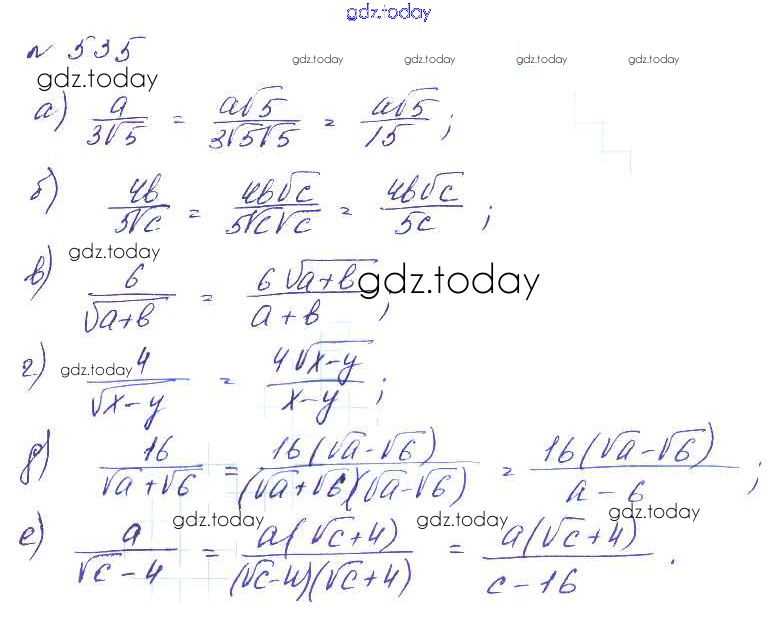 gdz.today
№ 535
gdz.today gdz.today gdz.today gdz.today
gdz.today
а) a/(3√5) = a√5/(3√5√5) = a√5/15;
б) 4b/(5√c) = 4b√c/(5√c√c) = 4b√c/(5c);
gdz.today
в) 6/√(a+b) = 6√(a+b)/(a+b);
gdz.today
г) 4/√(x-y) = 4√(x-y)/(x-y);
gdz.today
д) 16/(√a+√6) = 16(√a-√6)/((√a+√6)(√a-√6)) = 16(√a-√6)/(a-6);
gdz.today gdz.today gdz.today
е) a/(√c-4) = a(√c+4)/((√c-4)(√c+4)) = a(√c+4)/(c-16).